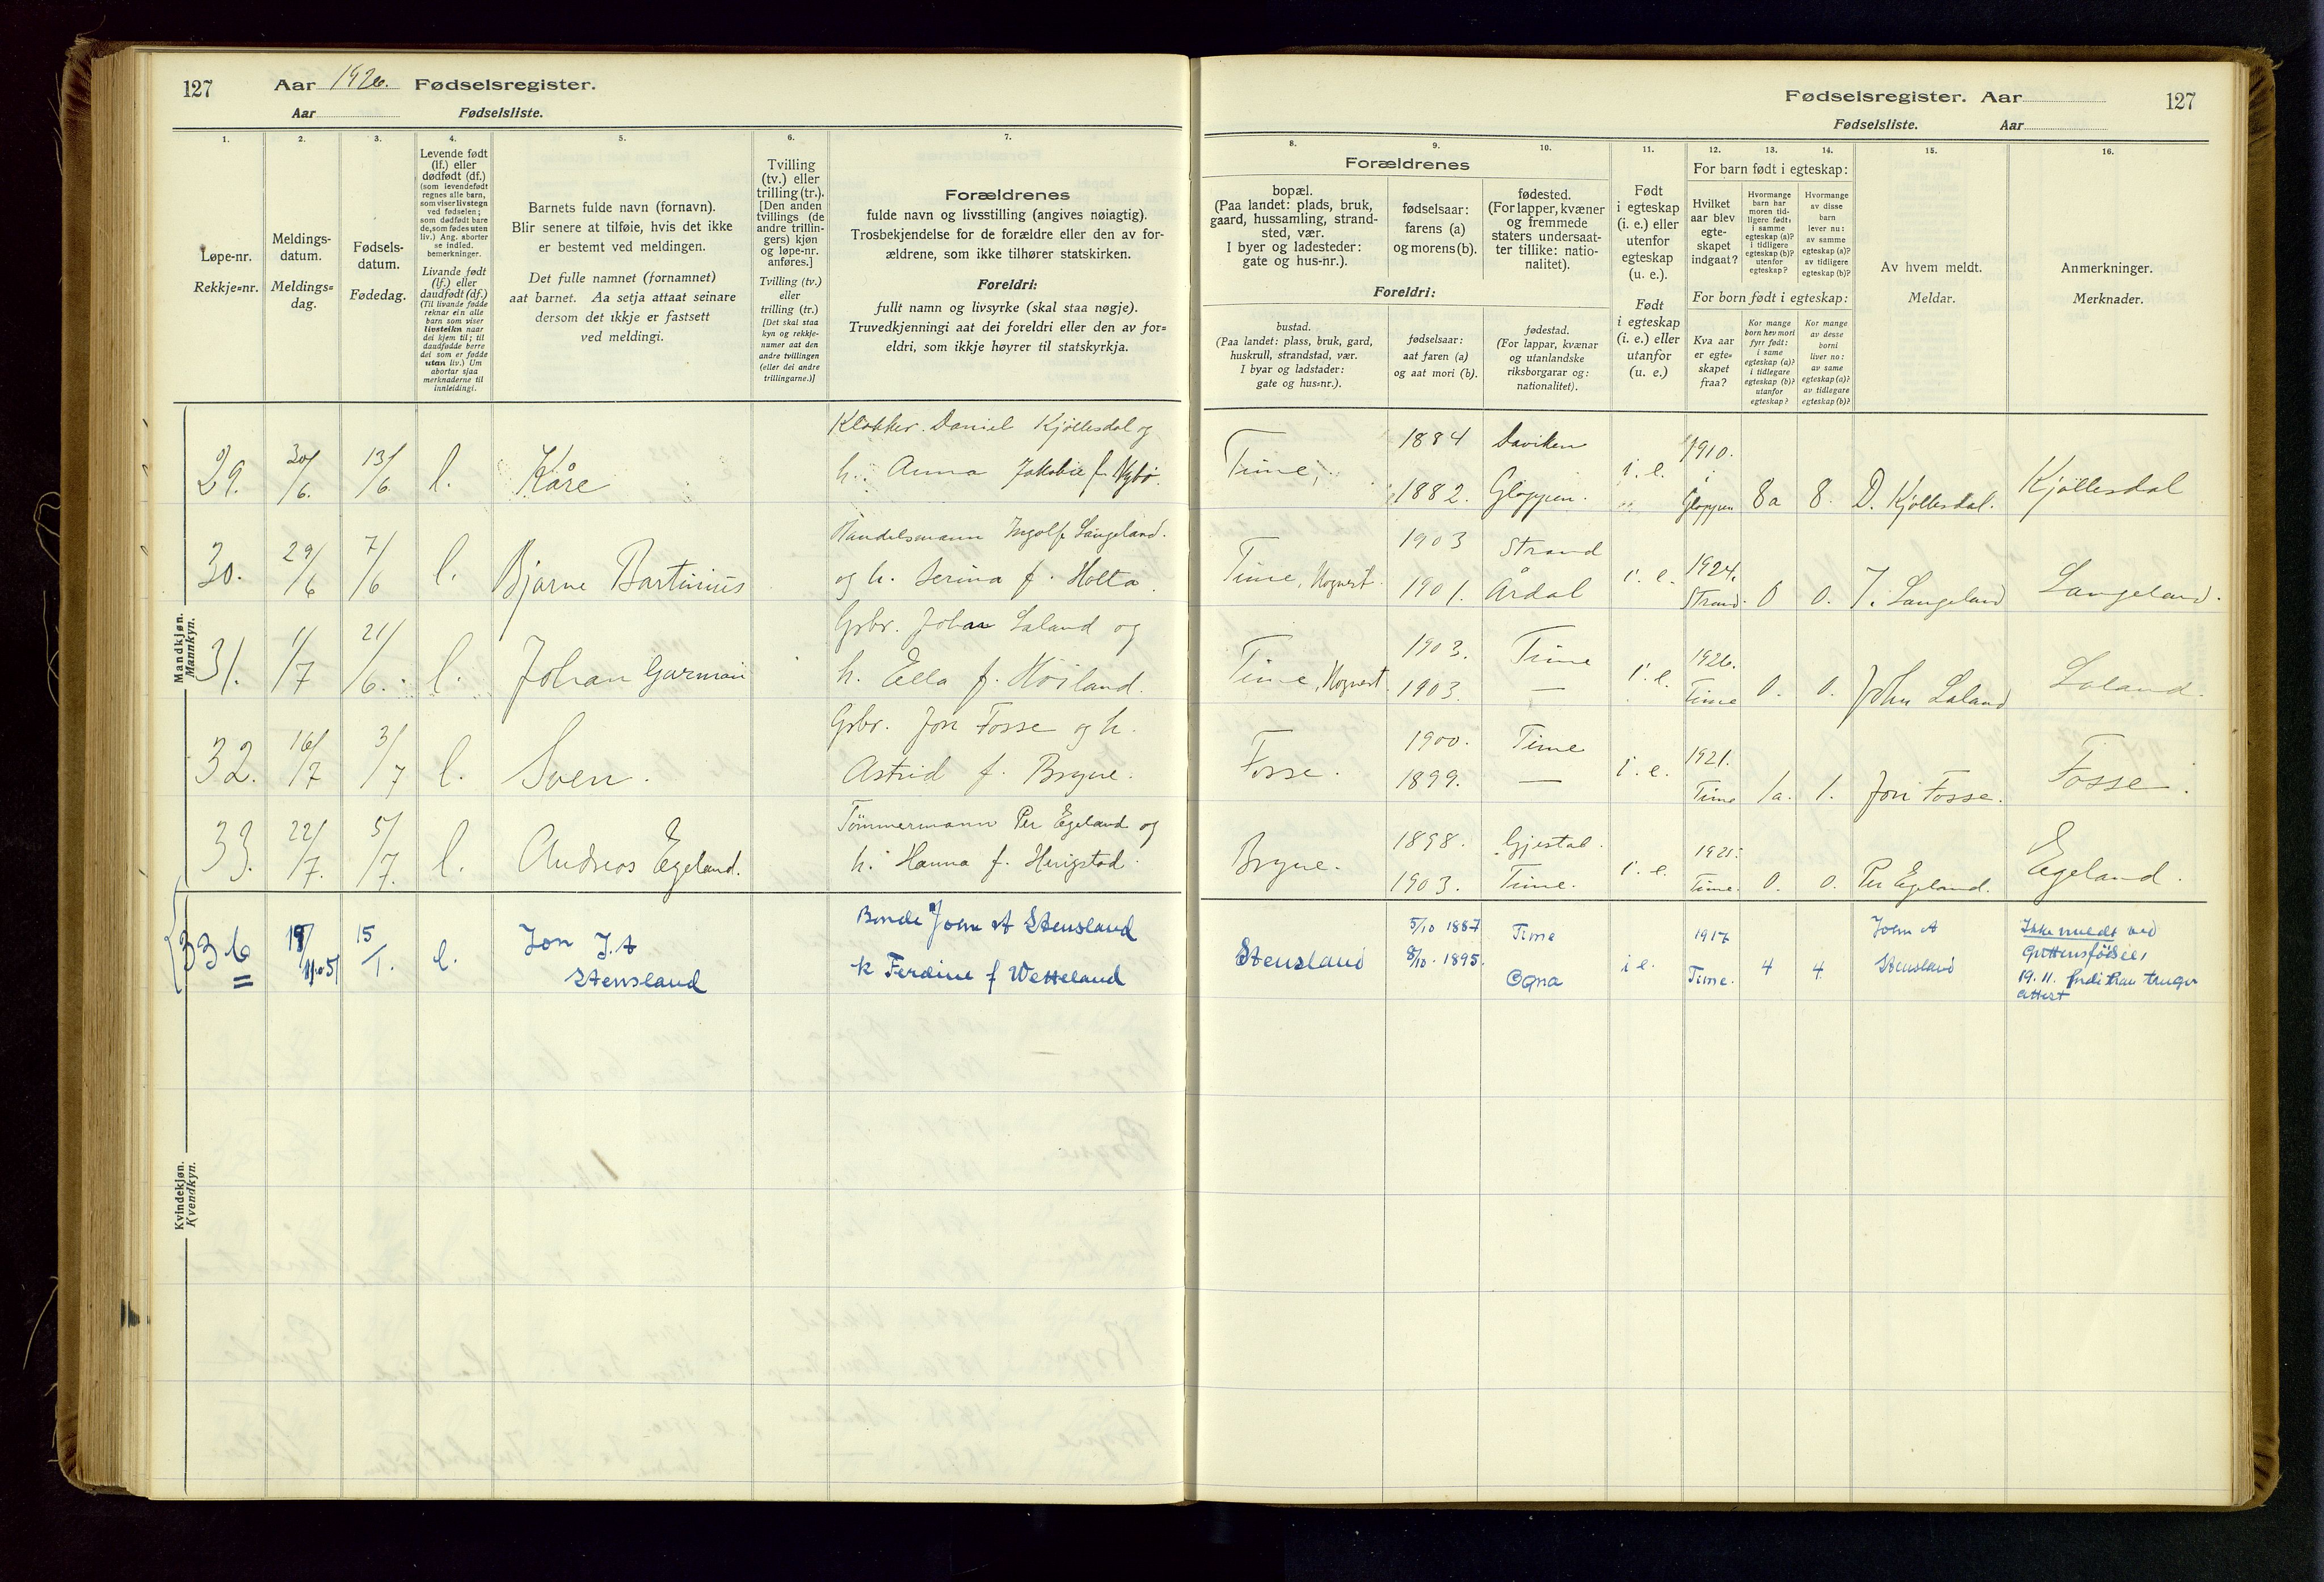 127 Aar 1926. Fødselsregister.
Aar Fødselsliste.
1.
Løpe-nr.
Rekkje=nr.
2.
Meldings-
datum.
Meldings=
dag.
3.
Fødsels-
datum.
Fødedag.
4.
Levende født
(lf.) eller
dødfødt (df.)
(som levendefødt
regnes alle barn,
som viser livstegn
ved fødselen;
som dødfødt bare
de, som fødes uten
liv.) Ang. aborter
se indled.
bemerkninger.
Livande født
(lf.) eller
daudfødt (df.)
(Til livande fødde
reknar ein alle
barn som viser
livsteikn naar
dei kjem til; til
daudfødde berre
dei som er fødde
utan liv.) Um
abortar sjaa
merknaderne til
innleidingi.
5.
Barnets fulde navn (fornavn).
Blir senere at tilføie, hvis det ikke
er bestemt ved meldingen.
Det fulle namnet (fornamnet)
aat barnet. Aa setja attaat seinare
dersom det ikkje er fastsett
ved meldingi.
6.
Tvilling
(tv.) eller
trilling (tr.).
[Den anden
tvillings (de
andre trillin-
gers) kjøn
og løpe-nr.
anføres.]
Tvilling (tv.)
eller
trilling (tr.)
[Det skal staa
kyn og rekkje-
numer aat den
andre tvillingen
(eller dei andre
trillingarne.)]
7.
Forældrenes
fulde navn og livsstilling (angives nøiagtig).
Trosbekjendelse for de forældre eller den av for-
ældrene, som ikke tilhører statskirken.
Foreldri:
fullt namn og livsyrke (skal staa nøgje).
Truvedkjenningi aat dei foreldri eller den av for=
eldri, som ikkje høyrer til statskyrkja.
Fødselsregister. Aar 127
Fødselsliste. Aar
8.
Forældrenes
bopæl.
(Paa landet: plads, bruk,
gaard, hussamling, strand-
sted, vær.
I byer og ladesteder:
gate og hus-nr.).
Foreldri:
bustad.
(Paa landet: plass, bruk, gard,
huskrull, strandstad, vær.
I byar og ladstader:
gate og hus=nr.).
9.
fødselsaar:
farens (a)
og morens (b).
fødselsaar:
aat faren (a)
og aat mori (b).
10.
fødested.
(For lapper, kvæner
og fremmede
staters undersaat-
ter tillike: natio-
nalitet).
fødestad.
(For lappar, kvænar
og utanlandske
riksborgarar og:
nationalitet).
11.
Født
i egteskap
(i. e.) eller
utenfor
egteskap
(u. e.).
Født
i egteskap
(i. e.) eller
utanfor
(u. e.)
12. 13. 14.
For barn født i egteskap:
Hvilket
aar blev
egte-
skapet
indgaat?
Hvormange
barn har
moren tid-
ligere født:
i samme
egteskap (a)?
i tidligere
egteskap (b)?
utenfor
egteskap?
Hvormange
av disse
barn
lever nu:
av samme
egteskap (a)?
av tidligere
egteskap (b)?
For born født i egteskap:
Kva aar
er egte=
skapet
fraa?
Kor mange
born hev mori
fyrr født:
i same
egteskap (a)?
i tidlegare
egteskap (b)?
utanfor
egteskap?
Kor mange
av desse
borni
liver no:
av same
egteskap (a)?
av tidlegare
egteskap (b)?
15.
Av hvem meldt.
Meldar.
16.
Anmerkninger.
Merknader.
Mandkjøn.
Mannkyn.
29. 30/6. 13/6. l. Kåre
Klokker Daniel Kjöllesdal og
h. Anna Jakobie f. Nybö.
Time, 1884 Daviken i. e. 1910.
1882. Gloppen. Gloppen 8a 8. D. Kjöllesdal. Kjöllesdal
30. 29/6 7/6 l. Bjarne Bartinius
Handelsmann Ingolf Langeland.
og h. Serina f. Holta.
Time, Hognest. 1903 Strand i. e. 1924.
1901. Årdal Strand. 0 0. I. Langeland Langeland.
31. 1/7 21/6. l. Johan Garman
Grbr. Johan Laland og
h. Ella f. Höiland.
Time, Hognest 1903. Time i. e. 1926.
1903. — Time 0. 0. John Laland Laland.
32. 16/7 3/7 l. Sven.
Grbr. Jon Fosse og h.
Astrid f. Bryne.
Fosse. 1900. Time i. e. 1921.
1899. — Time 1a. 1. Jon Fosse. Fosse.
33. 22/7. 5/7. l. Andreas Egeland.
Tömmermann Per Egeland og
h. Hanna f. Herigstad.
Bryne. 1898. Gjestal. i. e. 1925.
1903. Time. Time. 0. 0. Per Egeland. Egeland.
33 b 19/11.05/ 15/1. l. Jon J. A
Stensland
Bonde John A Stensland
k Ferdine f Wetteland
Stensland 5/10 1887 Time i e. 1917
8/10. 1895. Ogna Time. 4 4 John A
Stensland
Ikke meldt ved
Guttens födsel,
19. 11. fordi han trenger
attest
Kvindekjøn.
Kvendkyn.